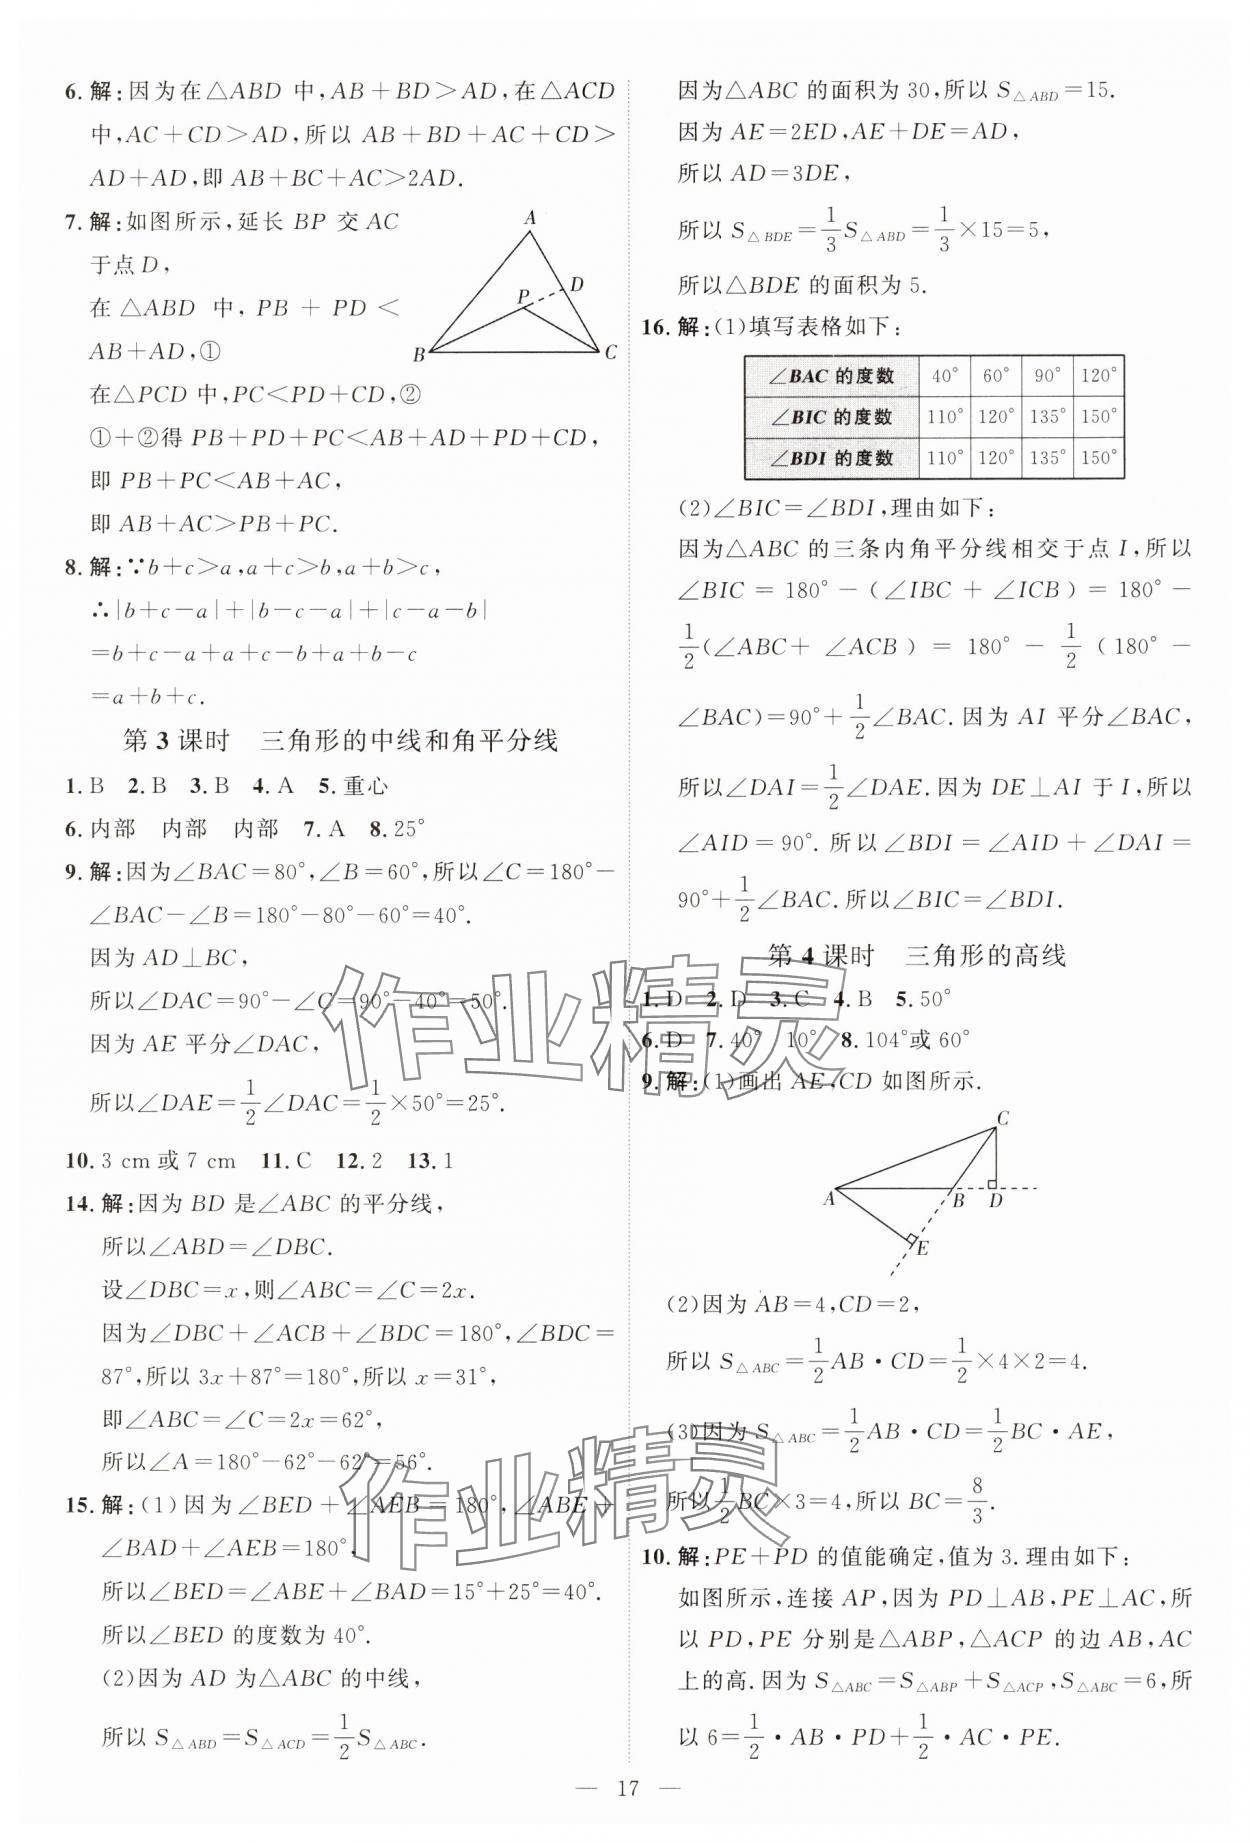 6.解:因为在△ABD 中,AB+BD>AD,在△ACD
中,AC+CD>AD,所以 AB+BD+AC+CD>
AD+AD,即 AB+BC+AC>2AD.
7.解:如图所示,延长 BP 交 AC
于点 D,
在 △ABD 中, PB + PD <
AB+AD,①
在△PCD 中,PC<PD+CD,②
①+②得 PB+PD+PC<AB+AD+PD+CD,
即 PB+PC<AB+AC,
即 AB+AC>PB+PC.
A
D
P
B
C
8.解:∵b+c>a,a+c>b,a+b>c,
∴|b+c-a|+|b-c-a|+|c-a-b|
=b+c-a+a+c-b+a+b-c
=a+b+c.
第 3 课时 三角形的中线和角平分线
1.B 2.B 3.B 4.A 5.重心
6.内部 内部 内部 7.A 8.25°
9.解:因为∠BAC=80°,∠B=60°,所以∠C=180°-
∠BAC-∠B=180°-80°-60°=40°.
因为 AD⊥BC,
所以∠DAC=90°-∠C=90°-40°=50°.
因为 AE 平分∠DAC,
所以∠DAE=1/2∠DAC=1/2×50°=25°.
10.3 cm或 7 cm 11.C 12.2 13.1
14.解:因为 BD 是∠ABC 的平分线,
所以∠ABD=∠DBC.
设∠DBC=x,则∠ABC=∠C=2x.
因为∠DBC+∠ACB+∠BDC=180°,∠BDC=
87°,所以 3x+87°=180°,所以 x=31°,
即∠ABC=∠C=2x=62°,
所以∠A=180°-62°-62°=56°.
15.解:(1)因为∠BED+∠AEB=180°,∠ABE+
∠BAD+∠AEB=180°,
所以∠BED=∠ABE+∠BAD=15°+25°=40°.
所以∠BED 的度数为 40°.
(2)因为 AD 为△ABC 的中线,
所以 S△ABD=S△ACD=1/2S△ABC.
因为△ABC 的面积为 30,所以 S△ABD=15.
因为 AE=2ED,AE+DE=AD,
所以 AD=3DE,
所以 S△BDE=1/3S△ABD=1/3×15=5,
所以△BDE 的面积为 5.
16.解:(1)填写表格如下:
∠BAC 的度数 40° 60° 90° 120°
∠BIC 的度数 110° 120° 135° 150°
∠BDI 的度数 110° 120° 135° 150°
(2)∠BIC=∠BDI,理由如下:
因为△ABC 的三条内角平分线相交于点 I,所以
∠BIC = 180° -(∠IBC + ∠ICB)= 180° -
1/2(∠ABC+ ∠ACB) = 180° - 1/2 (180° -
∠BAC)=90°+1/2∠BAC.因为 AI 平分∠BAC,
所以∠DAI=1/2∠DAE.因为 DE⊥AI 于 I,所以
∠AID = 90°. 所以 ∠BDI = ∠AID + ∠DAI =
90°+1/2∠BAC.所以∠BIC=∠BDI.
第 4 课时 三角形的高线
1.D 2.D 3.C 4.B 5.50°
6.D 7.40° 10° 8.104°或 60°
9.解:(1)画出 AE,CD 如图所示.
C
A
B
D
E
(2)因为 AB=4,CD=2,
所以 S△ABC=1/2AB·CD=1/2×4×2=4.
(3)因为 S△ABC=1/2AB·CD=1/2BC·AE,
所以1/2BC×3=4,所以 BC=8/3.
10.解:PE+PD 的值能确定,值为 3.理由如下:
如图所示,连接 AP,因为 PD⊥AB,PE⊥AC,所
以 PD,PE 分别是△ABP,△ACP 的边 AB,AC
上的高.因为 S△ABC=S△ABP+S△ACP,S△ABC=6,所
以 6=1/2·AB·PD+1/2·AC·PE.
作业精灵
作业精灵
— 17 —